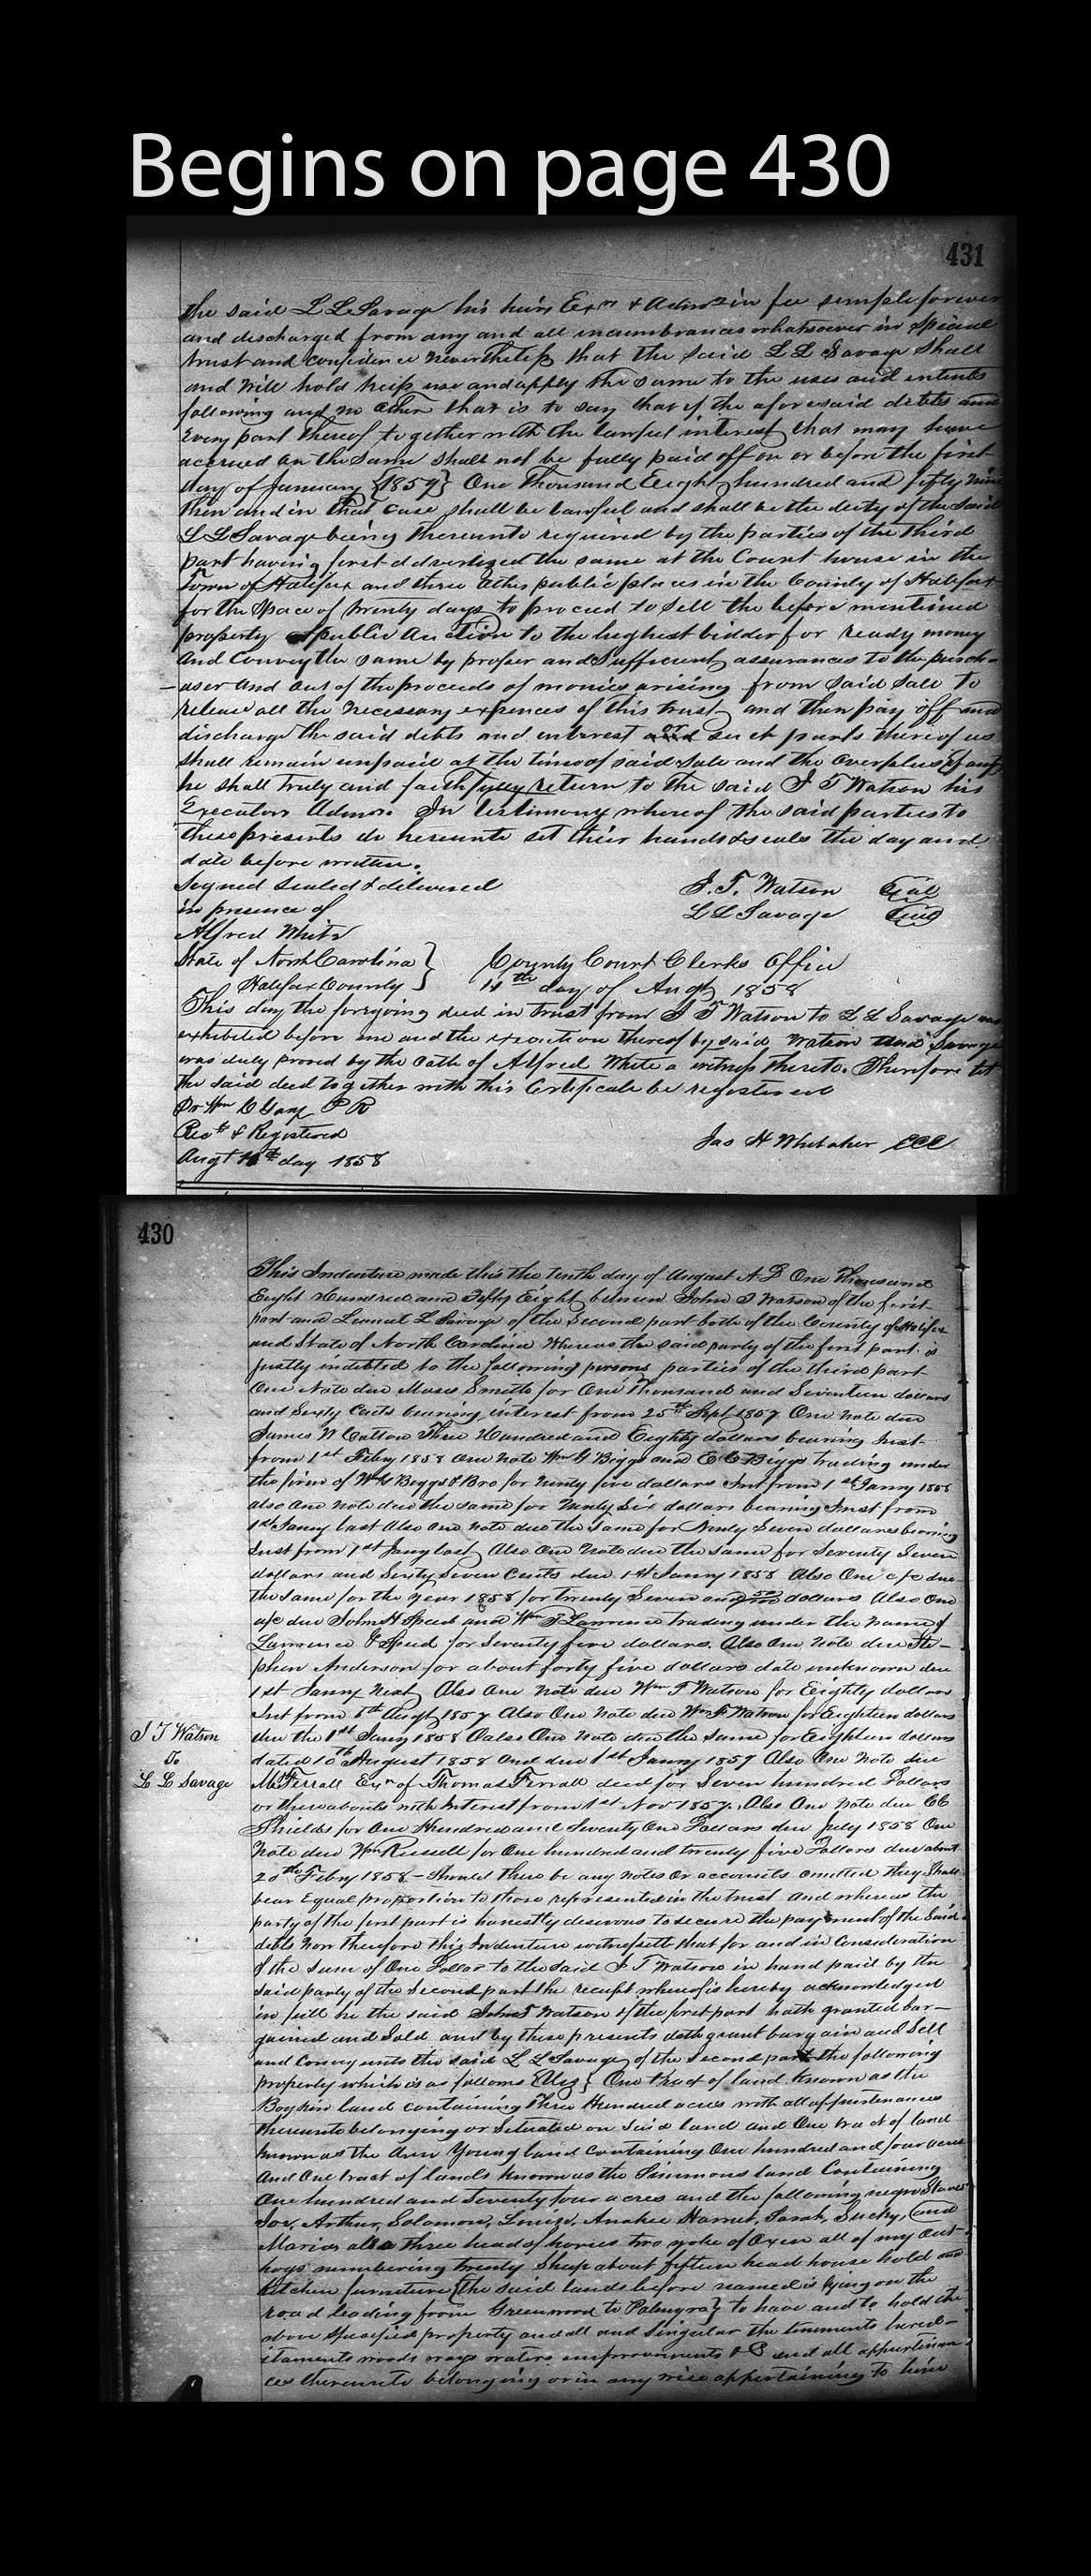 Begins on page 430
431
the said L L Savage his heirs Exrs & Admrs in fee simple forever
and discharged from any and all incumbrances whatsoever in special
trust and confidence Nevertheless that the said L L Savage Shall
and Will hold keep use and apply the same to the uses and intents
following and no other that is to say that if the aforesaid debts and
every part thereof together with the lawful interest that may have
accrued on the same shall not be fully paid off on or before the first
day of January {1859} One Thousand Eight hundred and fifty nine
then and in that case shall be lawful and shall be the duty of the said
L L Savage being thereunto required by the parties of the third
part having first advertised the same at the Court house in the
Town of Halifax and three other public places in the County of Halifax
for the space of twenty days to proceed to sell the before mentioned
property at public Auction to the highest bidder for ready money
and Convey the same by proper and Sufficient assurances to the purch-
-aser and out of the proceeds of monies arising from said sale to
release all the necessary expences of this trust and then pay off and
discharge the said debts and interest or such parts thereof as
shall remain unpaid at the time of said sale and the overplus if any
he shall truly and faithfully return to the said J T Watson his
Executors Admrs. In testimony whereof the said parties to
these presents do hereunto set their hands & seals the day and
date before written.
Signed sealed & delivered J. T. Watson Seal
in presence of L L Savage Seal
Alfred White
State of North Carolina } County Court Clerks Office
Halifax County } 11th day of Augt 1858
This day the foregoing deed in trust from J T Watson to L L Savage was
exhibited before me and the execution thereof by said Watson and Savage
was duly proved by the oath of Alfred White a witness thereto. Therefore let
the said deed together with this Certificate be registered
Dr Wm C Gary P R
Recd & Registered Jas H Whitaker CCC
Augt day 1858
430
This Indenture made this the tenth day of August A D One Thousand
Eight Hundred and Fifty Eight between John T Watson of the first
part and Lemuel L Savage of the Second part both of the County of Halifax
and State of North Carolina Whereas the said party of the first part is
justly indebted to the following persons parties of the third part
One Note due Moses Smith for One Thousand and Seventeen dollars
and Sixty Cents bearing interest from 25th Sept 1857 One note due
James W Cotton Three Hundred and Eighty dollars bearing Inst
from 1st Feby 1858 One note Wm G Biggs and E C Biggs trading under
the firm of W G Biggs & Bro for ninty five dollars Int from 1st Janry 1858
also One note due the same for Ninty Six dollars bearing Inst from
1st Janry last Also One note due the same for Ninty Seven dollars bearing
Inst from 1st Jany last Also One Note due the same for Seventy Seven
dollars and Sixty Seven Cents due 1st Janry 1858 Also One a/c due
the same for the year 1858 for twenty Seven and 52/100 dollars Also One
a/c due John H Speed and Wm T Lawrence trading under the name of
Lawrence & Speed for Seventy five dollars. Also One Note due Ste-
phen Anderson for about forty five dollars date unknown due
1st Janry Next Also One note due Wm F Watson for Eighty dollars
Int from 6th Augt 1857 Also One Note due Wm F Watson for Eighteen dollars
due the 1st Janry 1858 also One Note due the same for Eighteen dollars
J T Watson
To
L L Savage
dated 10th August 1858 and due 1st Janry 1859 Also One Note due
Ferrall Exr of Thomas Ferrall decd for Seven hundred Dollars
or thereabouts with Interest from 1st Nov 1857. Also One Note due CC
Shields for One Hundred and Seventy One Dollars due July 1858 One
Note due Wm Russell for One hundred and twenty five Dollars due about
20th Feby 1858 - Should there be any notes or accounts omitted they Shall
bear Equal proportion to those represented in the trust and whereas the
party of the first part is honestly desirous to secure the payment of the Said
debts Now therefore this Indenture witnesseth that for and in Consideration
of the sum of One Dollar to the said J T Watson in hand paid by the
said party of the second part the receipt whereof is hereby acknowledged
in full he the said John T Watson of the first part hath granted bar-
gained and sold and by these presents doth grant bargain and Sell
and Convey unto the said L L Savage of the second part the following
property which is as follows {Viz} One tract of land known as the
Boykin land containing Three Hundred acres with all appurtenances
thereunto belonging or Situated on said land and One tract of land
known as the Ann Young land Containing One hundred and four acres
And One tract of lands known as the Simmons land Containing
One hundred and Seventy four acres and the following negro Slaves
Joe, Arthur, Solomon, Louisa, Harriet, Sarah, Sucky, and
Maria also three head of horses two yoke of Oxen all of my out
hogs numbering twenty Sheep about fifteen head house hold and
kitchen furniture {the said lands before named is lying on the
road leading from Greenwood to Palmyra} to have and to hold the
above specified property and all and Singular the tenements hered-
itaments woods ways waters improvements &C and all appurtenan-
ces thereunto belonging or in any wise appertaining to him